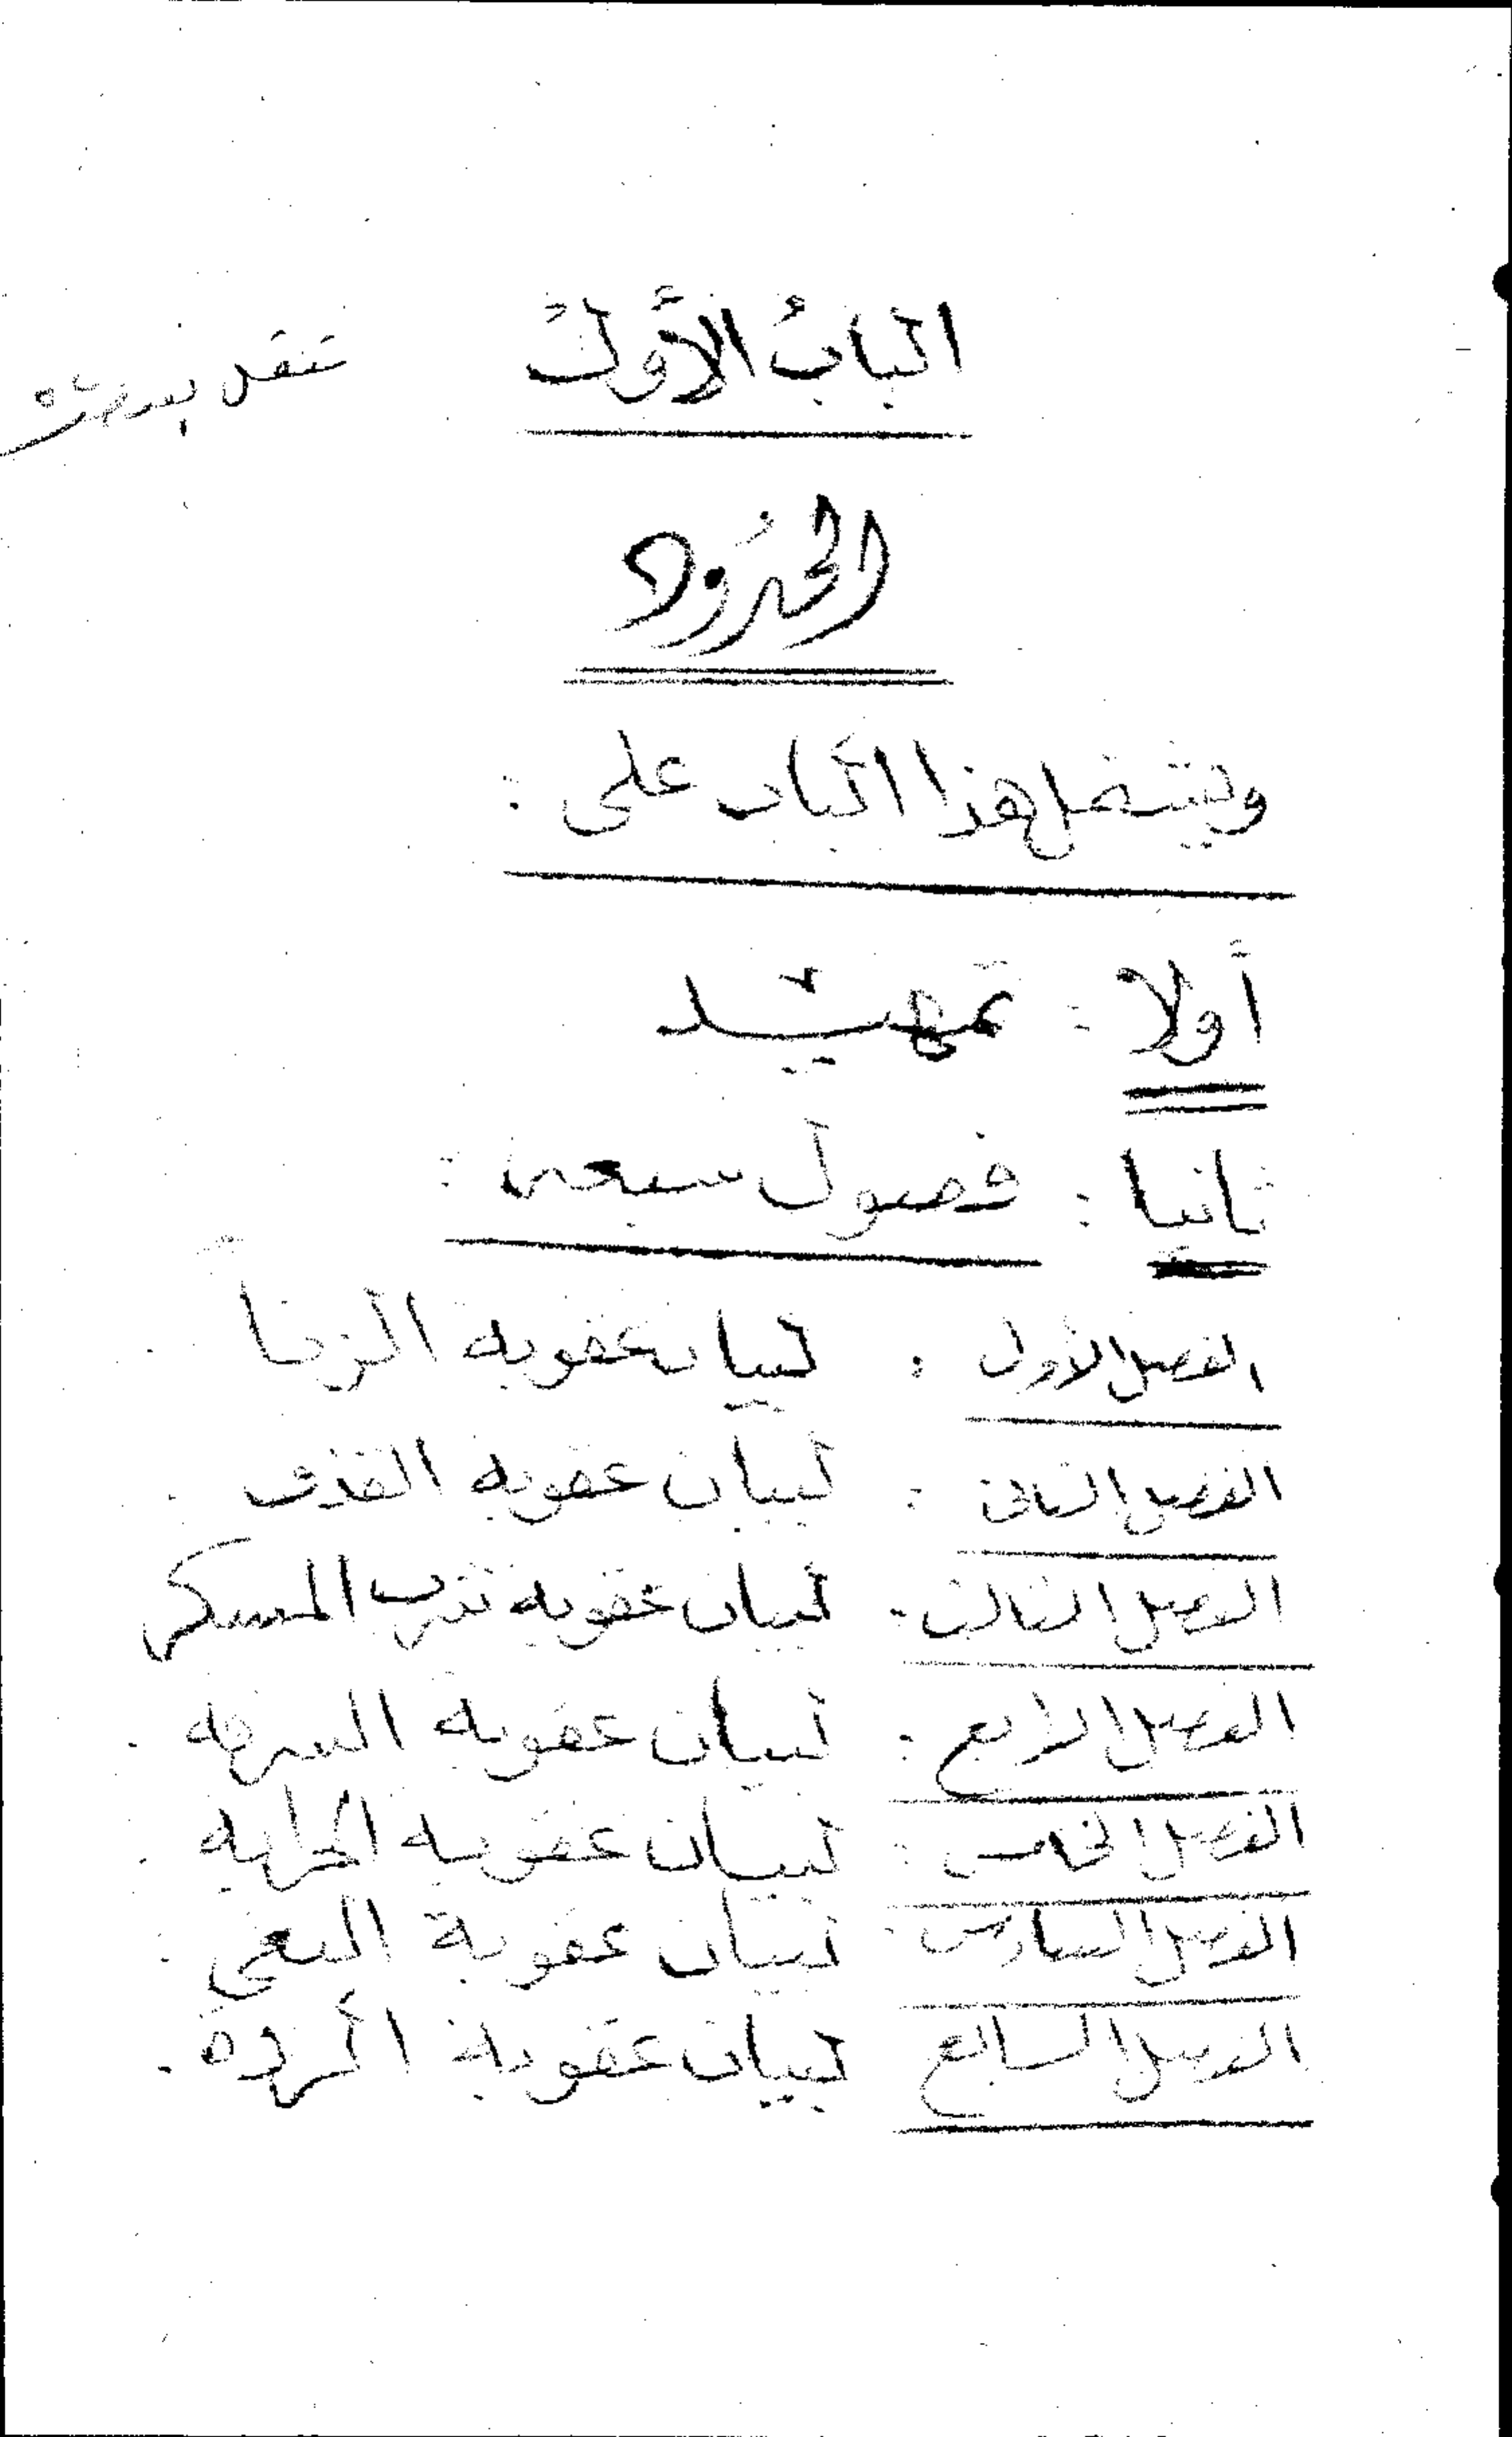 البابُ الأَوَّلُ
تنقل بعد
الحدُود
ويشمل هذا الباب على :
أولا : تمهيد
ثانيا : فصول سبعة :
الفصل الأول : لبيان عقوبة الزنا
الفصل الثانى : لبيان عقوبة القذف .
الفصل الثالث . لبيان عقوبة شرب المسكر
الفصل الرابع : لبيان عقوبة السرقة .
الفصل الخامس : لبيان عقوبة الحرابة .
الفصل السادس . لبيان عقوبة البغى .
الفصل السابع لبيان عقوبة الردة .